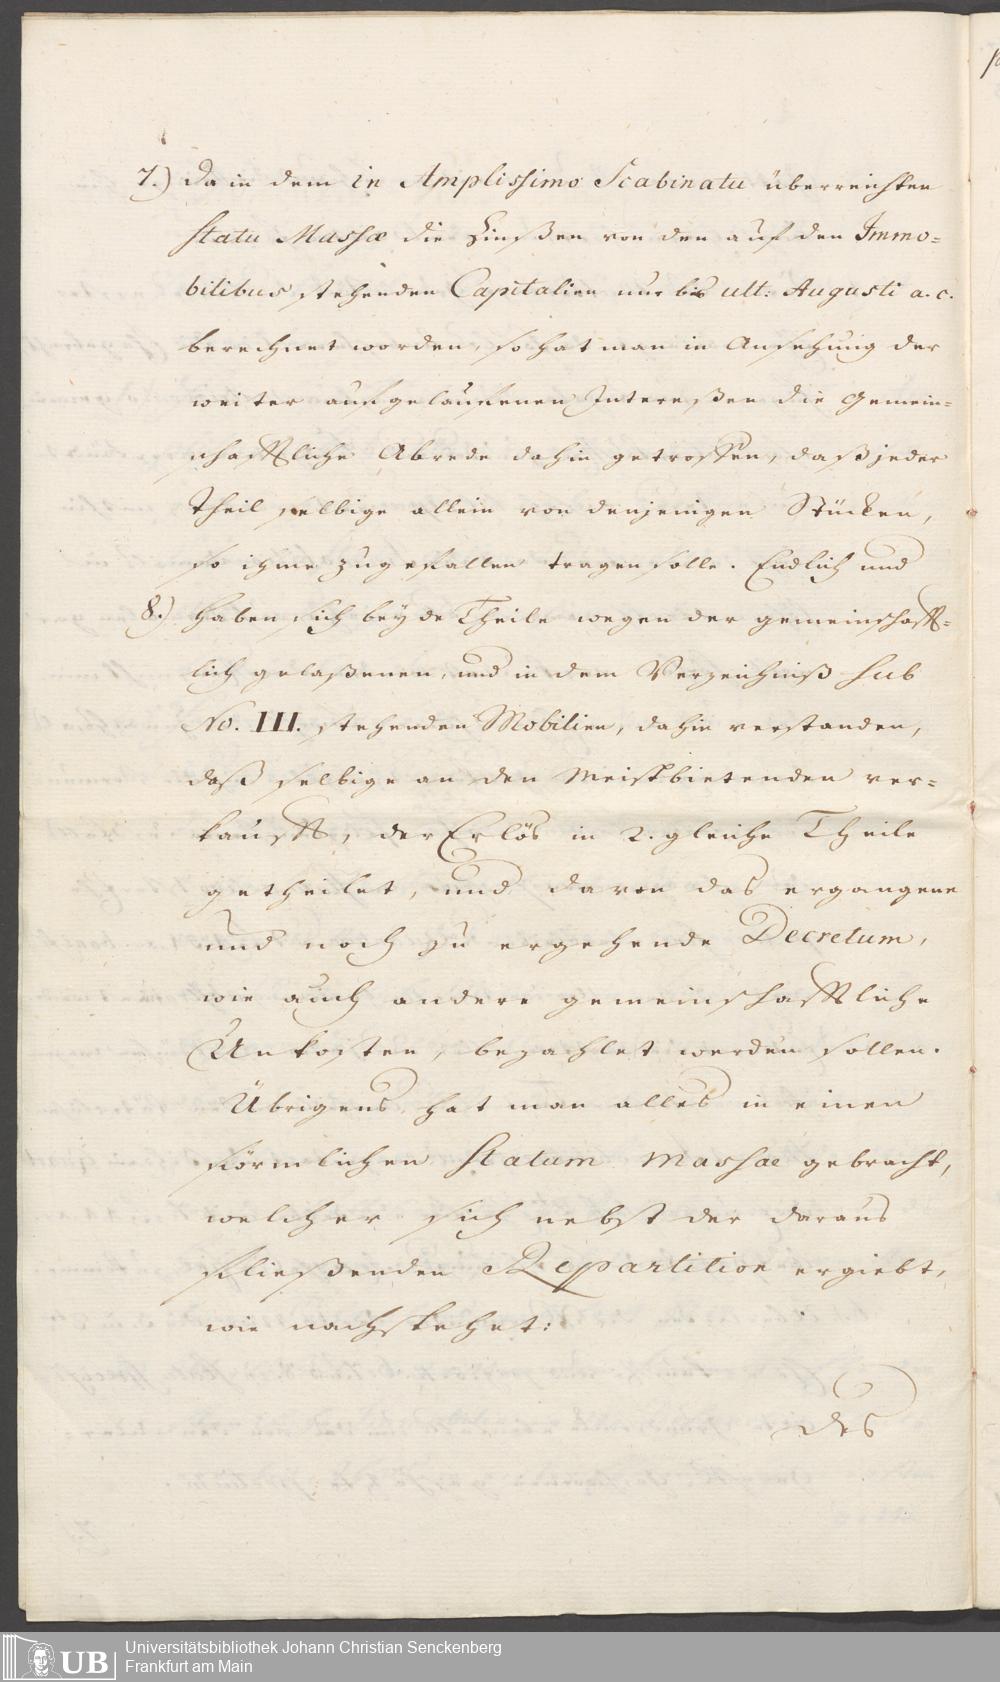 7.) Da in dem in Amplissimo Scabinatu überreichten
Statu Massæ die Zinßen von den auf den Immo=
bilibus stehenden Capitalien nur bis ult: Augusti a. c.
berechnet worden, so hat man in Ansehung der
weiter aufgelauffenen Intereßen die Gemein=
schafftliche Abrede dahin getroffen, daß jeder
Theil selbige allein von denjenigen Stücken,
so ihme zugefallen tragen solle. Endlich und
8.) Haben sich beyde Theile wegen der gemeinschafft=
lich gelaßenen, und in dem Verzeichniß sub
No. III. stehenden Mobilien, dahin verstanden,
daß selbige an den Meistbietenden ver=
kaufft, der Erlös in 2. gleiche Theile
getheilet, und davon das ergangene
und noch zu ergehende Decretum,
wie auch andere gemeinschafftliche
Unkosten, bezahlet werden sollen.
Übrigens hat man alles in einen
förmlichen Statum Massae gebracht,
welcher sich nebst der daraus
fließenden Repartition ergiebt,
wie nachstehet:
des
UB Universitätsbibliothek Johann Christian Senckenberg
Frankfurt am Main